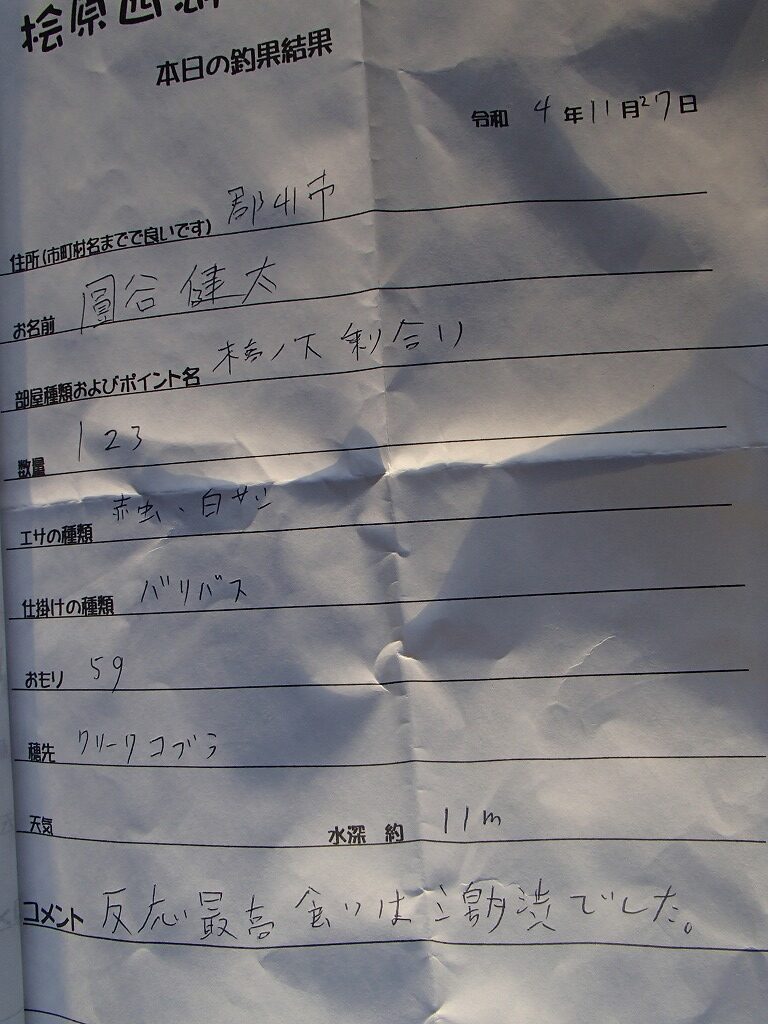 桧原西湖
本日の釣果結果
令和 4 年 11 月 27 日
住所(市町村名までで良いです) 郡山市
お名前 圓谷 健太
部屋種類およびポイント名 橋ノ下 割合い
数量 123
エサの種類 赤虫、白サシ
仕掛けの種類 バリバス
おもり 5g
穂先 クリークコブラ
天気 水深 約 11m
コメント 反応最高 食いは激渋でした。